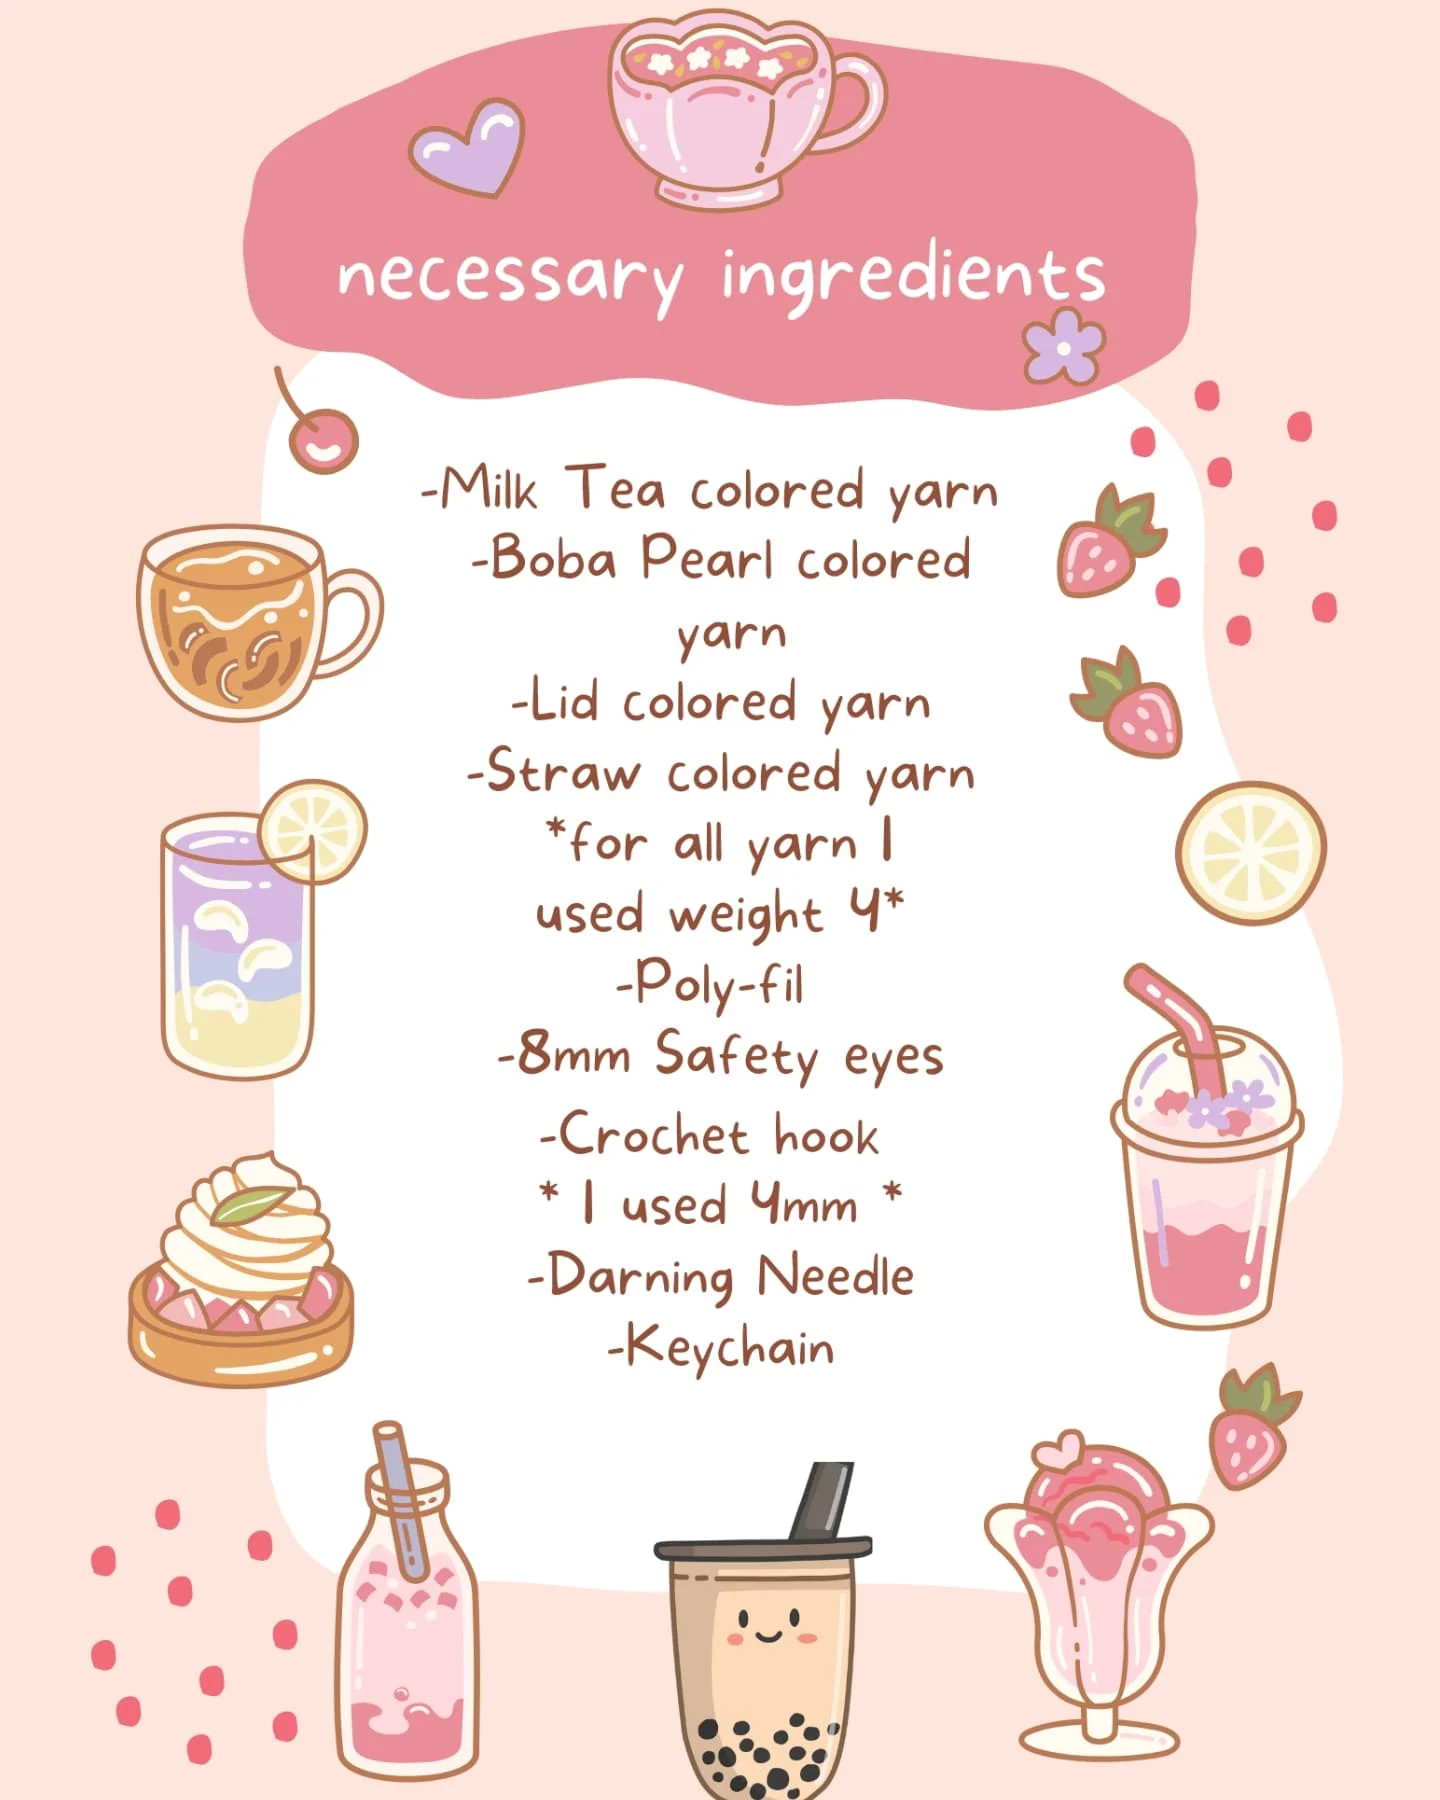 necessary ingredients
-Milk Tea colored yarn
-Boba Pearl colored
yarn
-Lid colored yarn
-Straw colored yarn
*for all yarn I
used weight 4*
-Poly-fil
-8mm Safety eyes
-Crochet hook
* I used 4mm *
-Darning Needle
-Keychain